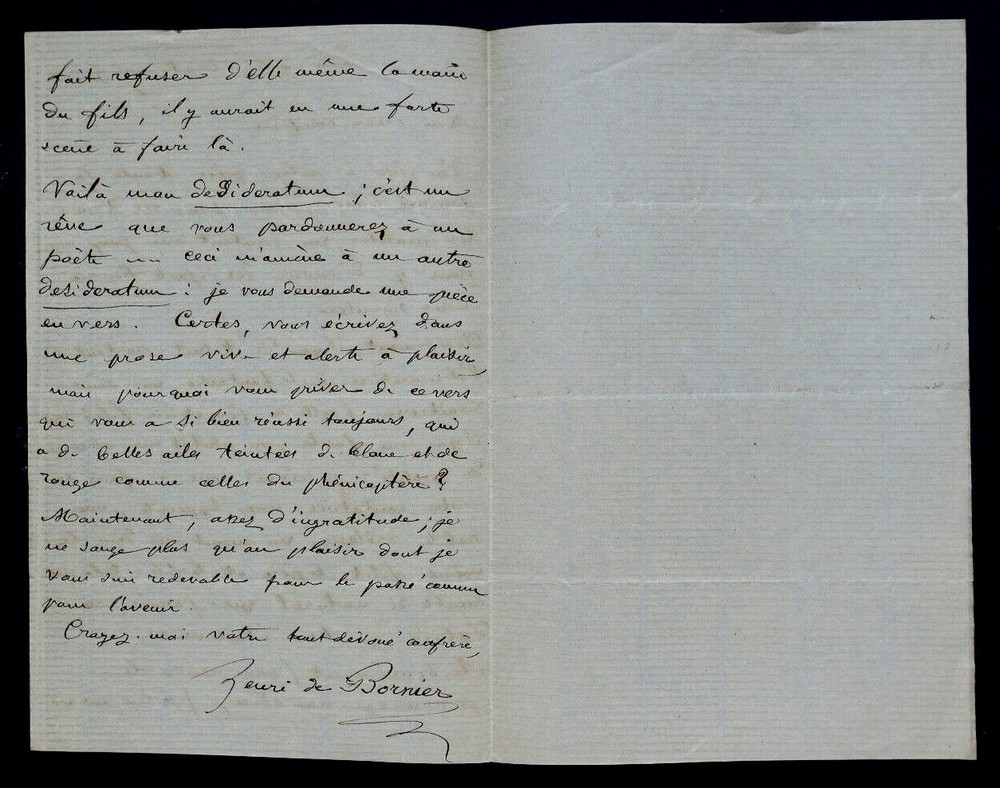 fait refuser d'elle même la main
du fils, il y aurait eu une forte
scène à faire là.
Voilà mon desideratum ; c'est un
rêve que vous pardonnerez à un
poète ... ceci m'amène à un autre
desideratum : je vous demande une pièce
en vers. Certes, vous écrivez dans
une prose vive et alerte à plaisir,
mais pourquoi vous priver de ce vers
qui vous a si bien réussi toujours, qui
a de belles ailes teintées de blanc et de
rouge comme celles du phénicoptère ?
Maintenant, assez d'ingratitude ; je
ne songe plus qu'au plaisir dont je
vous suis redevable pour le passé comme
pour l'avenir.
Croyez-moi votre tout dévoué confrère,
Henri de Bornier